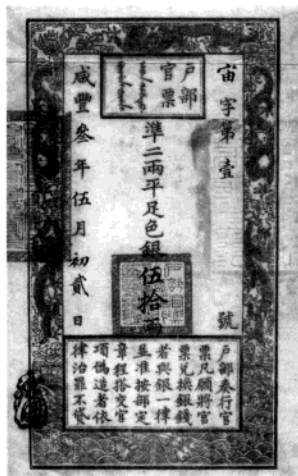 户部
官票
宙字第壹
號
準二兩平足色銀伍拾兩
咸豐叁年伍月初貳日
户部奏行官
票凡願將官
票兑換銀錢
若與銀一律
並准按部定
章程搭交官
項偽造者依
律治罪不貸